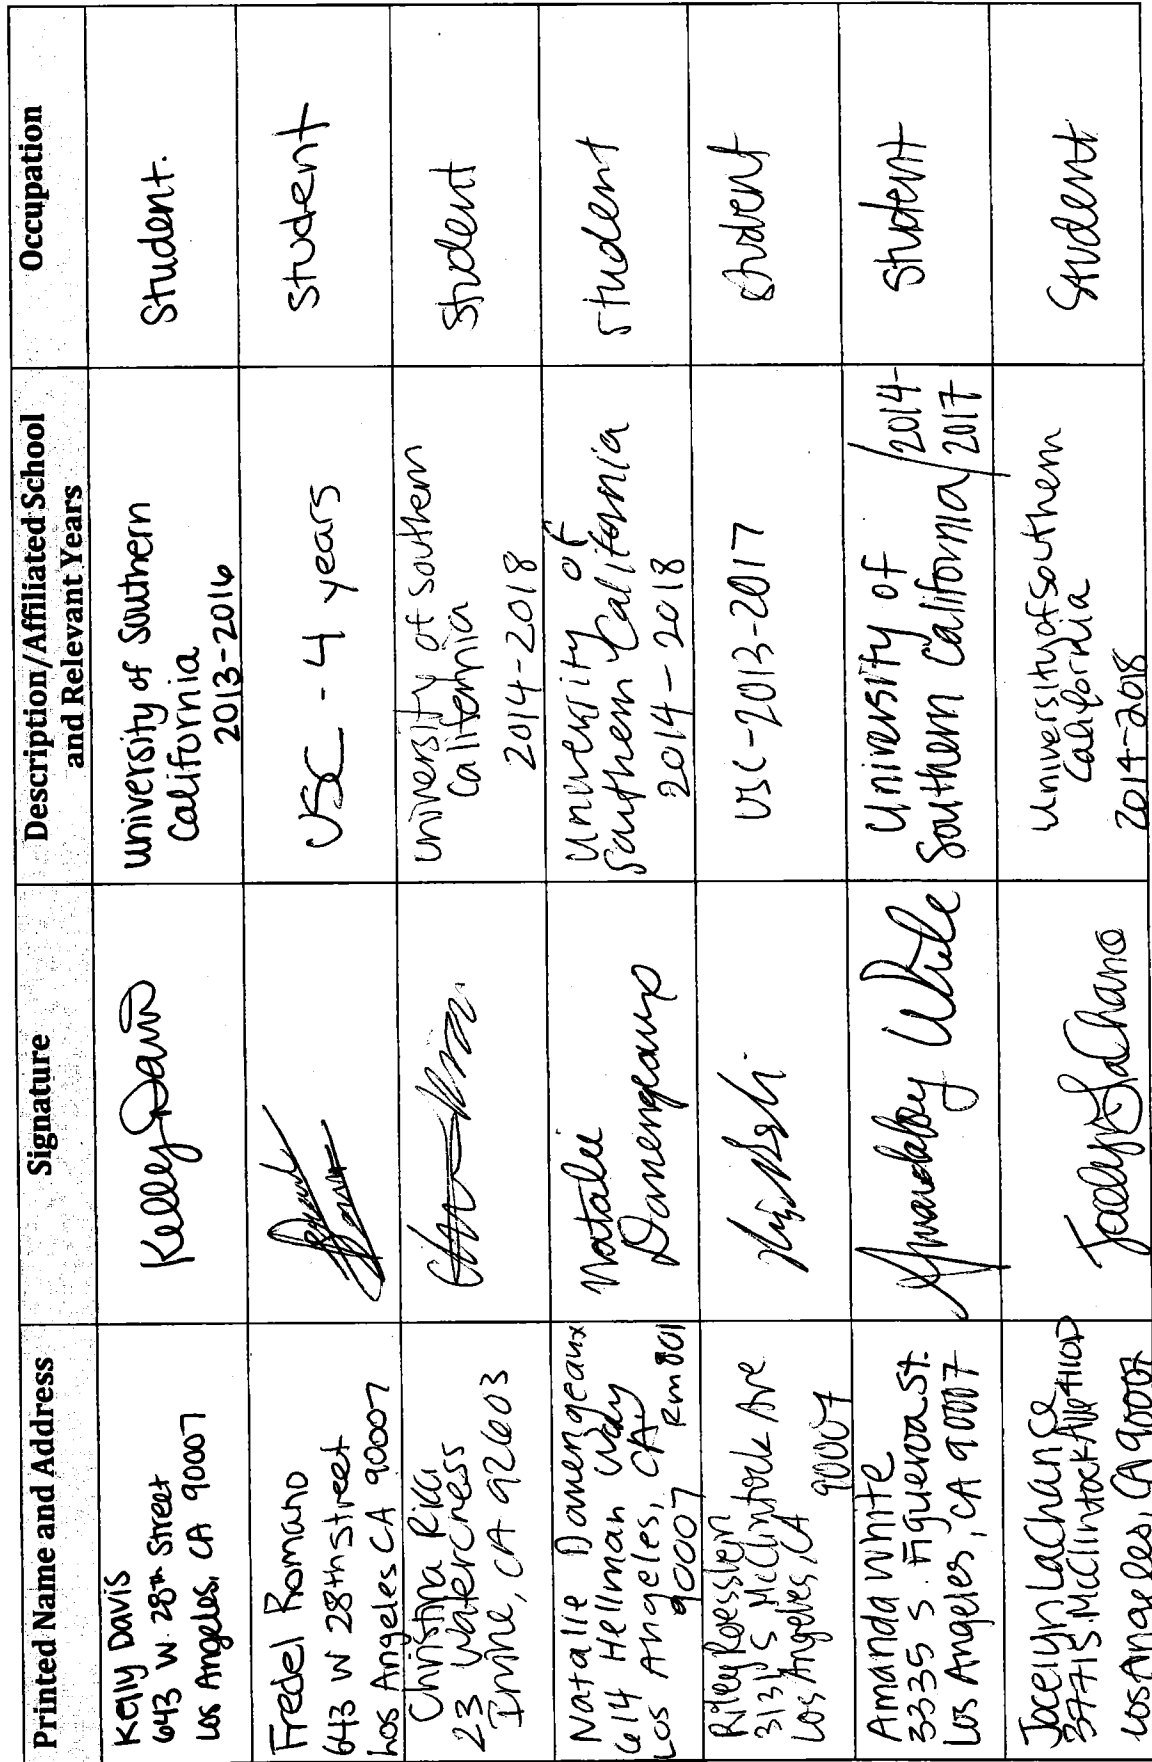 Printed Name and Address
Signature
Description/Affiliated School
and Relevant Years
Occupation
Kelly Davis
643 W. 28th Street
Los Angeles, CA 90007
Kelly Davis
University of Southern
California
2013-2016
Student.
Fredel Romano
643 W 28th Street
Los Angeles CA 90007
USC - 4 years
Student
Christina
23 Watercress
Irvine, CA 92603
University of Southern
California
2014-2018
Student
Natalie Damengeaux
614 Hellman Way
Los Angeles, CA, Rm 801
90007
Natalie
Damengeaux
University of
Southern California
2014-2018
Student
Riley
3131 S McClintock Ave
Los Angeles, CA
90007
USC-2013-2017
Student
Amanda White
3335 S. Figueroa St.
Los Angeles, CA 90007
White
University of
Southern California/2014-
2017
Student
Jocelyn LaChance
3771 S. McClintock Ave
Los Angeles, CA 90007
Jocelyn LaChance
University of Southern
California
2014-2018
Student